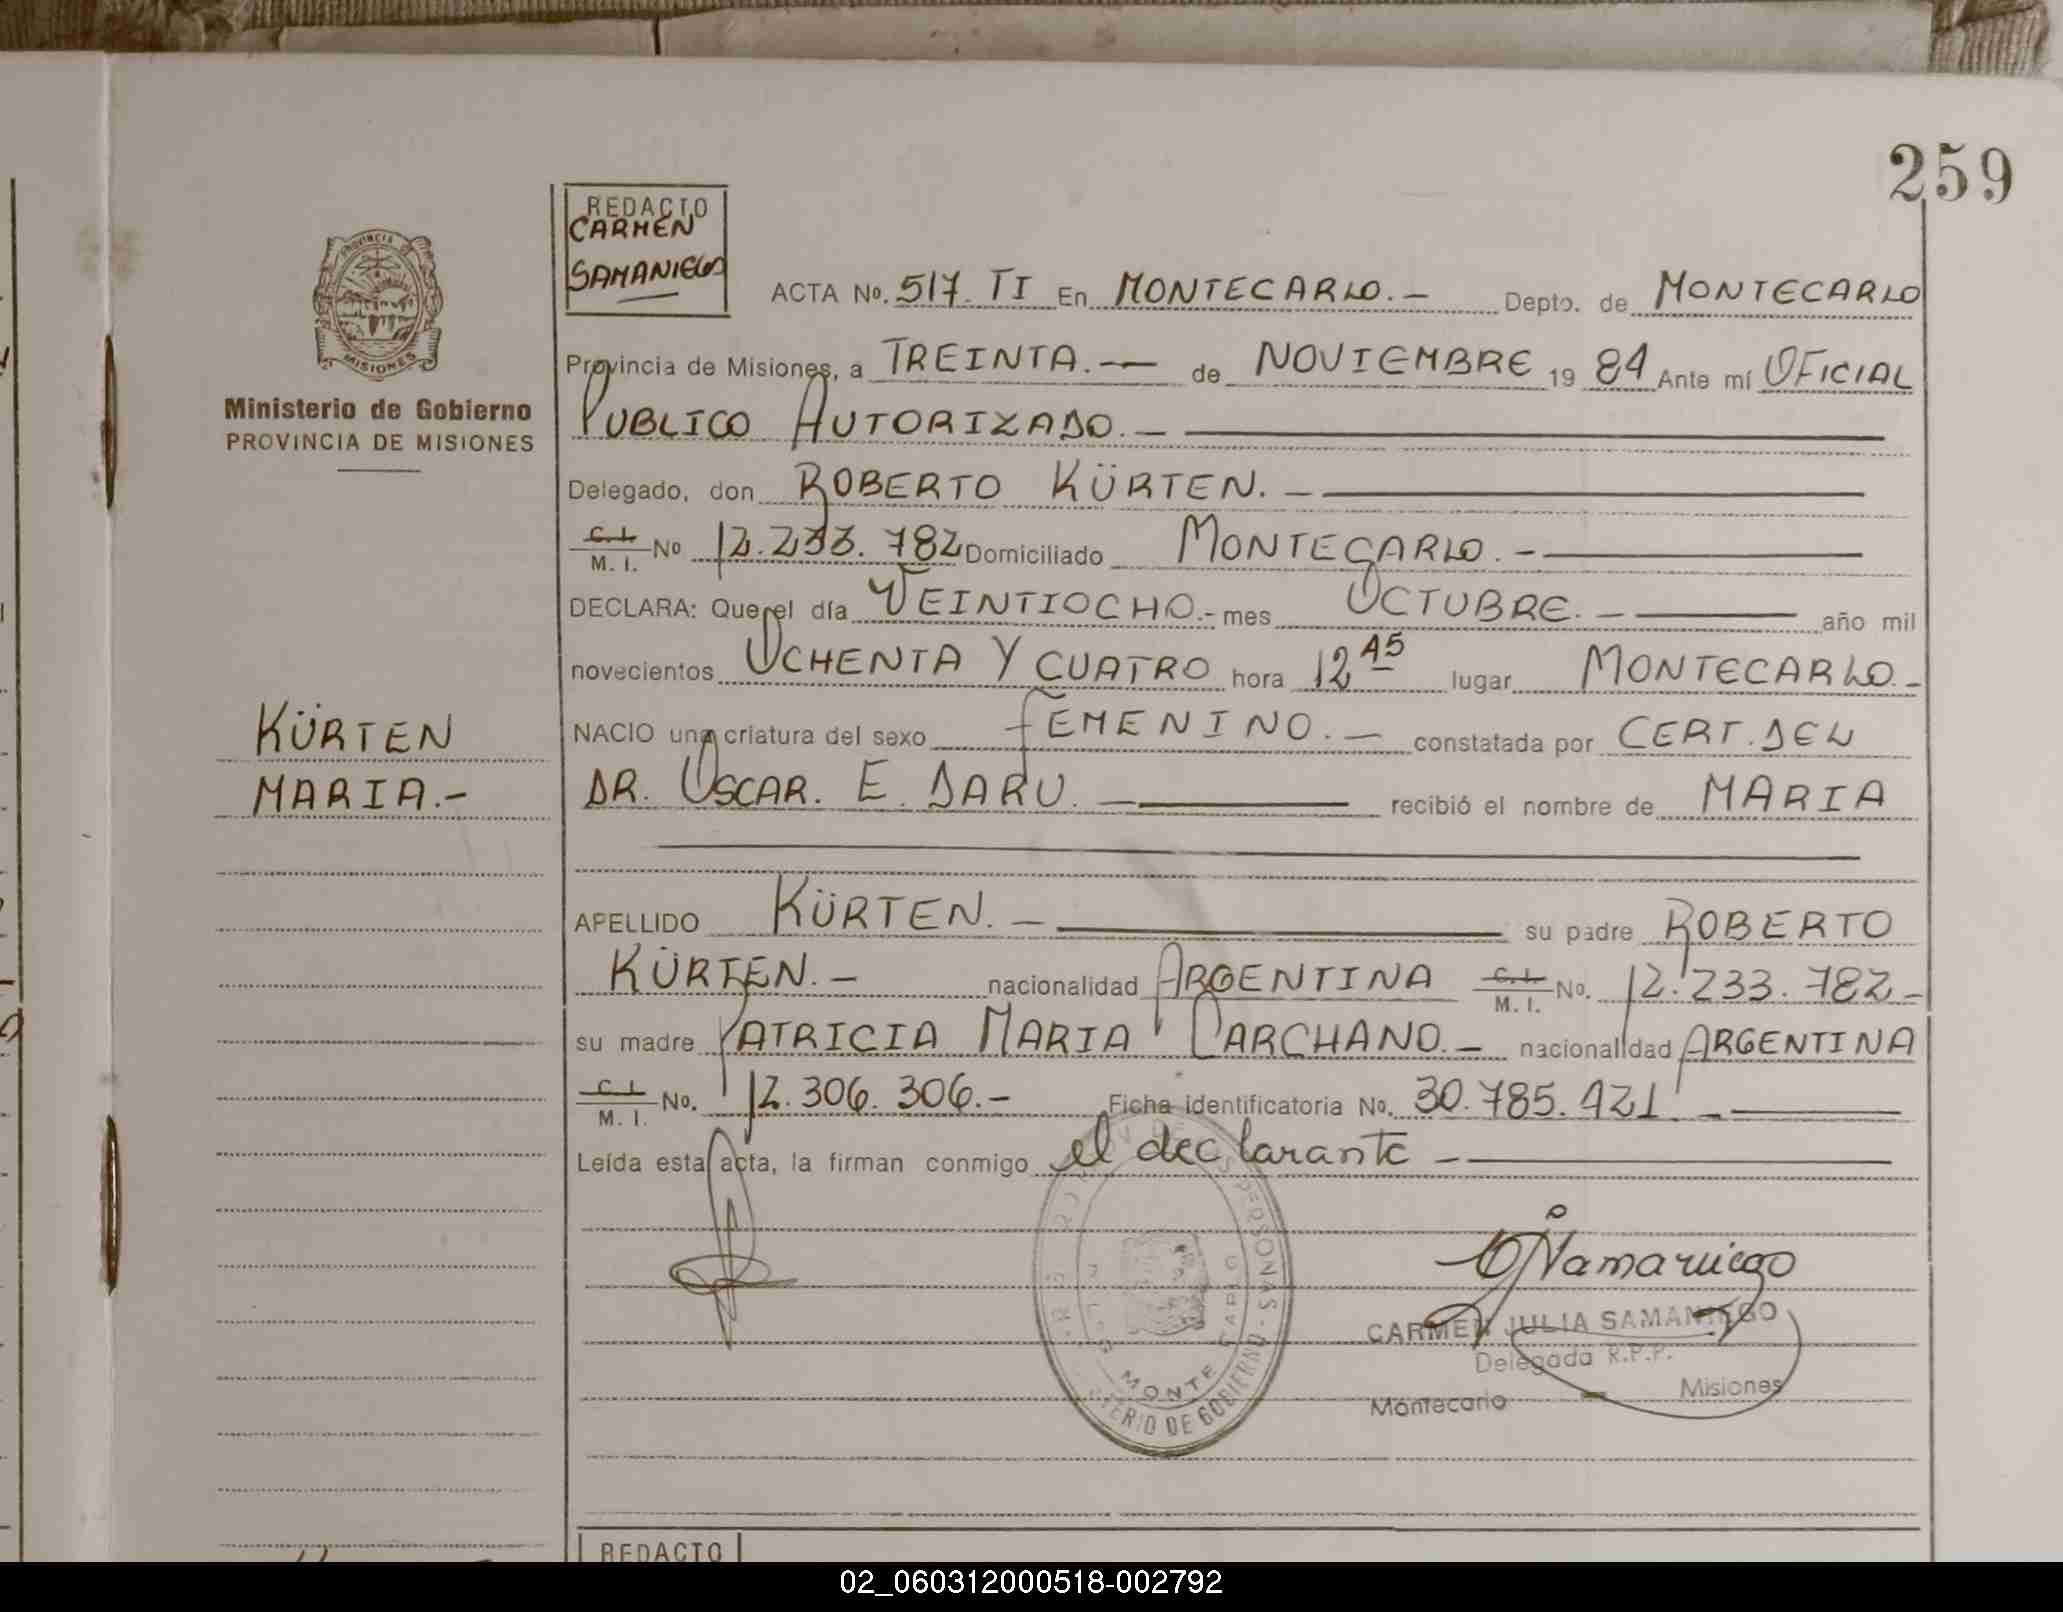 259
REDACTO
CARMEN
SAMANIEGO
ACTA No. 517. TI En MONTECARLO.- Depto. de MONTECARLO
PROVINCIA
MISIONES
Provincia de Misiones, a TREINTA.- de NOVIEMBRE 1984 Ante mí OFICIAL
Ministerio de Gobierno
PROVINCIA DE MISIONES
PUBLICO AUTORIZADO.-
Delegado, don ROBERTO KÜRTEN.-
C. I.
M. I. No 12.233.782 Domiciliado MONTECARLO.-
DECLARA: Que el día VEINTIOCHO.- mes OCTUBRE.- año mil
novecientos OCHENTA Y CUATRO hora 12 45 lugar MONTECARLO.-
KÜRTEN
MARIA.-
NACIO una criatura del sexo FEMENINO.- constatada por CERT. DEL
DR. OSCAR. E. DARU.- recibió el nombre de MARIA
APELLIDO KÜRTEN.- su padre ROBERTO
KÜRTEN.- nacionalidad ARGENTINA C. I.
M. I. No. 12.233.782-
su madre PATRICIA MARIA CARCHANO.- nacionalidad ARGENTINA
C. I.
M. I. No. 12.306.306.- Ficha identificatoria No. 30.785.421.-
Leída esta acta, la firman conmigo el declarante-
PERSONAS - MONTE CARLO
MINISTERIO DE GOBIERNO
CJSamaniego
CARMEN JULIA SAMANIEGO
Delegada R.P.P.
Montecarlo - Misiones
REDACTO
02_060312000518-002792